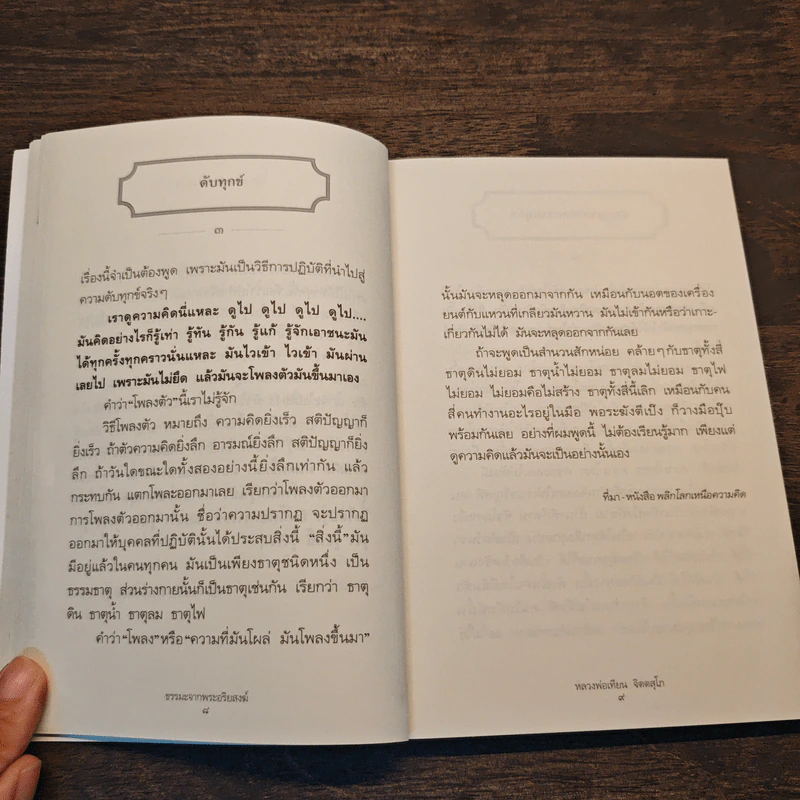 ดับทุกข์
๓
เรื่องนี้จำเป็นต้องพูด เพราะมันเป็นวิธีการปฏิบัติที่นำไปสู่
ความดับทุกข์จริงๆ
เราดูความคิดนี่แหละ ดูไป ดูไป ดูไป ดูไป....
มันคิดอย่างไรก็รู้เท่า รู้ทัน รู้กัน รู้แก้ รู้จักเอาชนะมัน
ได้ทุกครั้งทุกคราวนั่นแหละ มันไวเข้า ไวเข้า มันผ่าน
เลยไป เพราะมันไม่ยึด แล้วมันจะโพลงตัวมันขึ้นมาเอง
คำว่า“โพลงตัว”นี้เราไม่รู้จัก
วิธีโพลงตัว หมายถึง ความคิดยิ่งเร็ว สติปัญญาก็
ยิ่งเร็ว ถ้าตัวความคิดยิ่งลึก อารมณ์ยิ่งลึก สติปัญญาก็ยิ่ง
ลึก ถ้าวันใดขณะใดทั้งสองอย่างนี้ยิ่งลึกเท่ากัน แล้ว
กระทบกัน แตกโพละออกมาเลย เรียกว่าโพลงตัวออกมา
การโพลงตัวออกมานั้น ชื่อว่าความปรากฏ จะปรากฏ
ออกมาให้บุคคลที่ปฏิบัตินั้นได้ประสบสิ่งนี้ “สิ่งนี้”มัน
มีอยู่แล้วในคนทุกคน มันเป็นเพียงธาตุชนิดหนึ่ง เป็น
ธรรมธาตุ ส่วนร่างกายนั้นก็เป็นธาตุเช่นกัน เรียกว่า ธาตุ
ดิน ธาตุน้ำ ธาตุลม ธาตุไฟ
คำว่า“โพลง”หรือ“ความที่มันโผล่ มันโพลงขึ้นมา”
ธรรมะจากพระอริยสงฆ์
๘
นั้นมันจะหลุดออกมาจากกัน เหมือนกับนอตของเครื่อง
ยนต์กับแหวนที่เกลียวมันหวาน มันไม่เข้ากันหรือว่าเกาะ-
เกี่ยวกันไม่ได้ มันจะหลุดออกจากกันเลย
ถ้าจะพูดเป็นสำนวนสักหน่อย คล้ายๆกับธาตุทั้งสี่
ธาตุดินไม่ยอม ธาตุน้ำไม่ยอม ธาตุลมไม่ยอม ธาตุไฟ
ไม่ยอม ไม่ยอมคือไม่สร้าง ธาตุทั้งสี่นี้เลิก เหมือนกับคน
สี่คนทำงานอะไรอยู่ในมือ พอระฆังตีเป๊ง ก็วางมือปุ๊บ
พร้อมกันเลย อย่างที่ผมพูดนี้ ไม่ต้องเรียนรู้มาก เพียงแต่
ดูความคิดแล้วมันจะเป็นอย่างนั้นเอง
ที่มา - หนังสือ พลิกโลกเหนือความคิด
หลวงพ่อเทียน จิตตสุโภ
๙